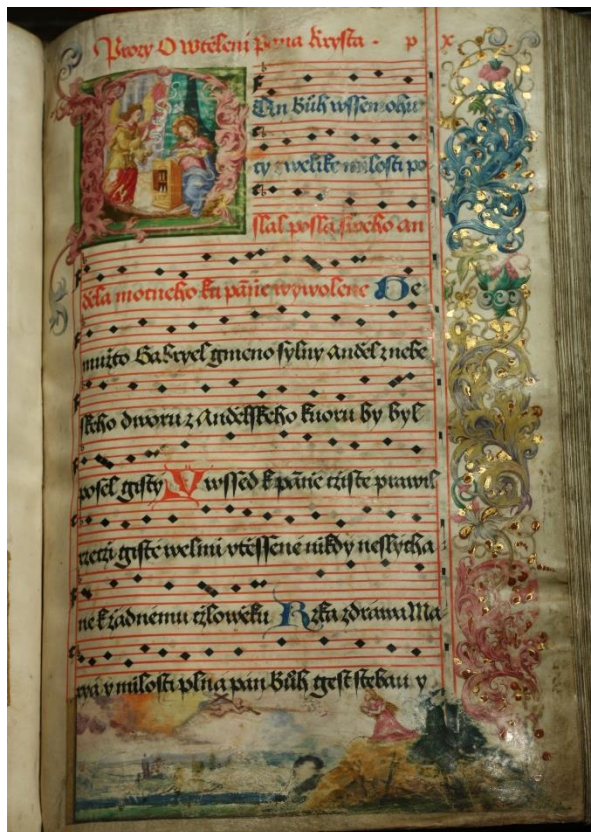 Prozy O wtěleni pana Krysta - p x
Pan Bůh wssemohu
ty z welike milosti po-
slal posla swého an
děla mocneho ku pānie wywolene De
mužto Gabryel gmeno sylny anděl z nebe
ského dworu z Andělského kuoru by byl
posel gisty Wssed k pānie cžiste prawil
rzecži gisté welmi vtěssené nikdy neslycha-
ne k žadnému cžlowěku Rzka zdráwa Ma-
rya y milosti plna pan Bůh gest s tebau y